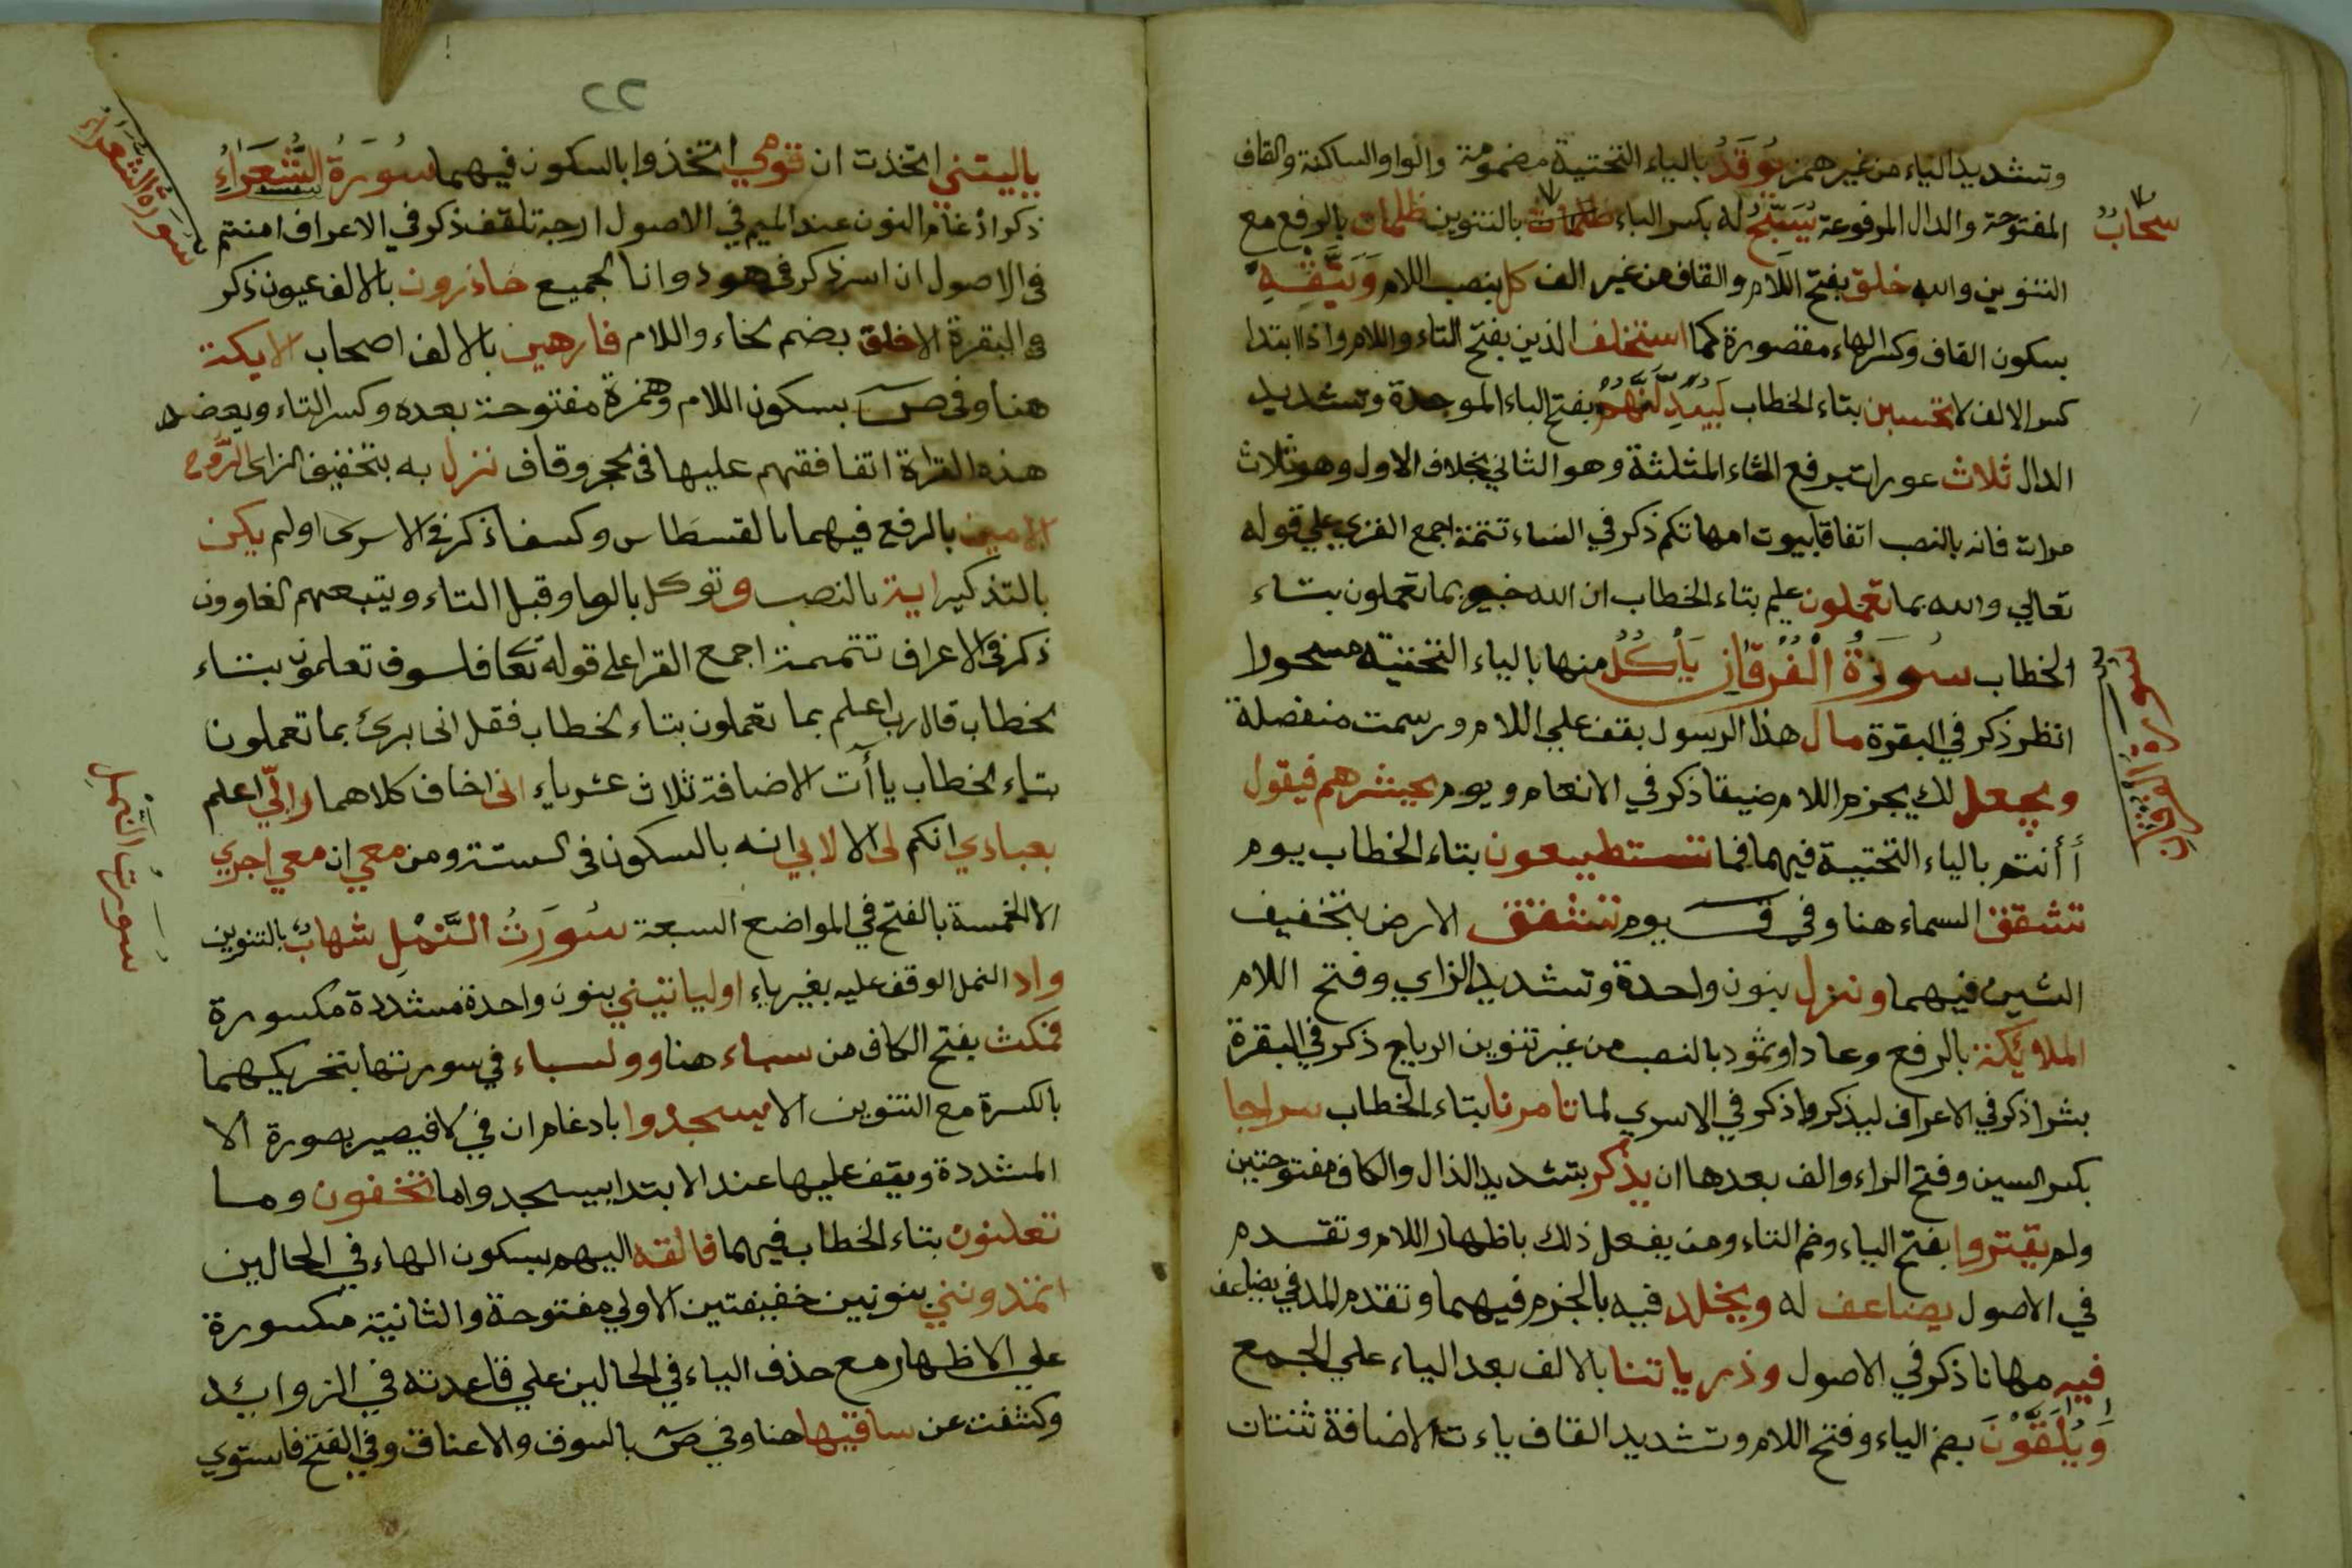 وتشديد الياء من غير همز يُوقَدُ بالياء التحتية مضمومة والواو الساكنة والقاف
المفتوحة والدال المرفوعة يُسَبِّحُ له بكسر الباء ظلمات بالتنوين ظلمات بالرفع مع
سحابٌ
التنوين والله خلق بفتح اللام والقاف من غير الف كل بنصب اللام وَيَتَّقْهِ
بسكون القاف وكسر الهاء مقصورة كما استخلف الذين بفتح التاء واللام واذا ابتدا
كسر الالف لا تحسبن بتاء الخطاب لَيُبَدِّلَنَّهُمْ بفتح الباء الموحدة وتشديد
الدال ثلاث عورات برفع الثاء المثلثة وهو الثاني بخلاف الاول وهو ثلاث
مرات فانه بالنصب اتفاقا بيوت امهاتكم ذكر في النساء تتمة اجمع القراء علي قوله
تعالي والله بما تعملون عليم بتاء الخطاب ان الله خبير بما تعملون بتاء
الخطاب سُورَةُ الْفُرْقَانِ يَأْكُلُ منها بالياء التحتية مسحورا
سورة الفرقان
انظر ذكر في البقرة مال هذا الرسول يقف علي اللام ورسمت منفصلة
ويجعل لك بجزم اللام ضيقا ذكر في الانعام ويوم يحشرهم فيقول
أأنتم بالياء التحتية فيهما فما تستطيعون بتاء الخطاب يوم
تشقق السماء هنا وفي ق يوم تشقق الارض بتخفيف
الشين فيهما ونزل بنون واحدة وتشديد الزاي وفتح اللام
الملائكة بالرفع وعادا وثمود بالنصب من غير تنوين الرياح ذكر في البقرة
بشرا ذكر في الاعراف ليذكروا ذكر في الاسري لما تامرنا بتاء الخطاب سراجا
بكسر السين وفتح الراء والف بعدها ان يذكر بتشديد الذال والكاف مفتوحتين
ولم يقتروا بفتح الياء وضم التاء ومن يفعل ذلك باظهار اللام وتقدم
في الاصول يضاعف له ويخلد فيه بالجزم فيهما وتقدم المد في يضاعف
فيه مهانا ذكر في الاصول وذرياتنا بالالف بعد الياء علي الجمع
وَيُلَقَّوْنَ بضم الياء وفتح اللام وتشديد القاف ياءت الاضافة ثنتان
٢٢
ياليتني اتخذت ان قومي اتخذوا بالسكون فيهما سُورَةُ الشُّعَرَاءُ
سورة الشعراء
ذكر ادغام النون عند الميم في الاصول ارجه تلقف ذكر في الاعراف امنتم
في الاصول ان اسر ذكر في هود وانا لجميع حاذرون بالالف عيون ذكر
في البقرة الاخلق بضم لخاء واللام فارهين بالالف اصحاب الايكة
هنا وفي ص بسكون اللام وهمزة مفتوحة بعده وكسر التاء وبعضد
هذه القراة اتفاقهم عليها في لحجر وقاف نزل به بتخفيف الزاى الروح
الامين بالرفع فيهما بالقسطاس وكسفا ذكر في الاسرى اولم يكن
بالتذكير اية بالنصب وتوكل بالواو قبل التاء ويتبعهم لغاوون
ذكر في الاعراف تتمة اجمع القرا على قوله تعا فلسوف تعلمون بتاء
لخطاب قال رب اعلم بما تعملون بتاء لخطاب فقل انى برئ بما تعملون
بتاء لخطاب ياآت الاضافة ثلاث عشر ياء انى اخاف كلاهما رابّي اعلم
بعبادي انكم لى الا لابي انه بالسكون في لستة ومن معي ان معي اجري
الا الخمسة بالفتح في المواضع السبعة سُورَتُ النَّمْلِ شهابٌ بالتنوين
سورت النمل
واد النمل الوقف عليه بغير ياء اوليا تيني بنون واحدة مشددة مكسورة
فمكث بفتح الكاف من سباء هنا ولسباء في سورتها بتحريكهما
بالكسرة مع التنوين الا يسجدوا بادغام ان في لا فيصير بصورة الا
المشددة ويقف عليها عند الابتدا بيسجدوا ما تخفون وما
تعلنون بتاء الخطاب فيهما فالقه اليهم بسكون الهاء في الحالين
اتمدونني بنونين خفيفتين الاولي مفتوحة والثانية مكسورة
علي الاظهار مع حذف الياء في الحالين علي قاعدته في الزوائد
وكشفت عن ساقيها هنا وفي ص بالسوق والاعناق وفي الفتح فاستوي